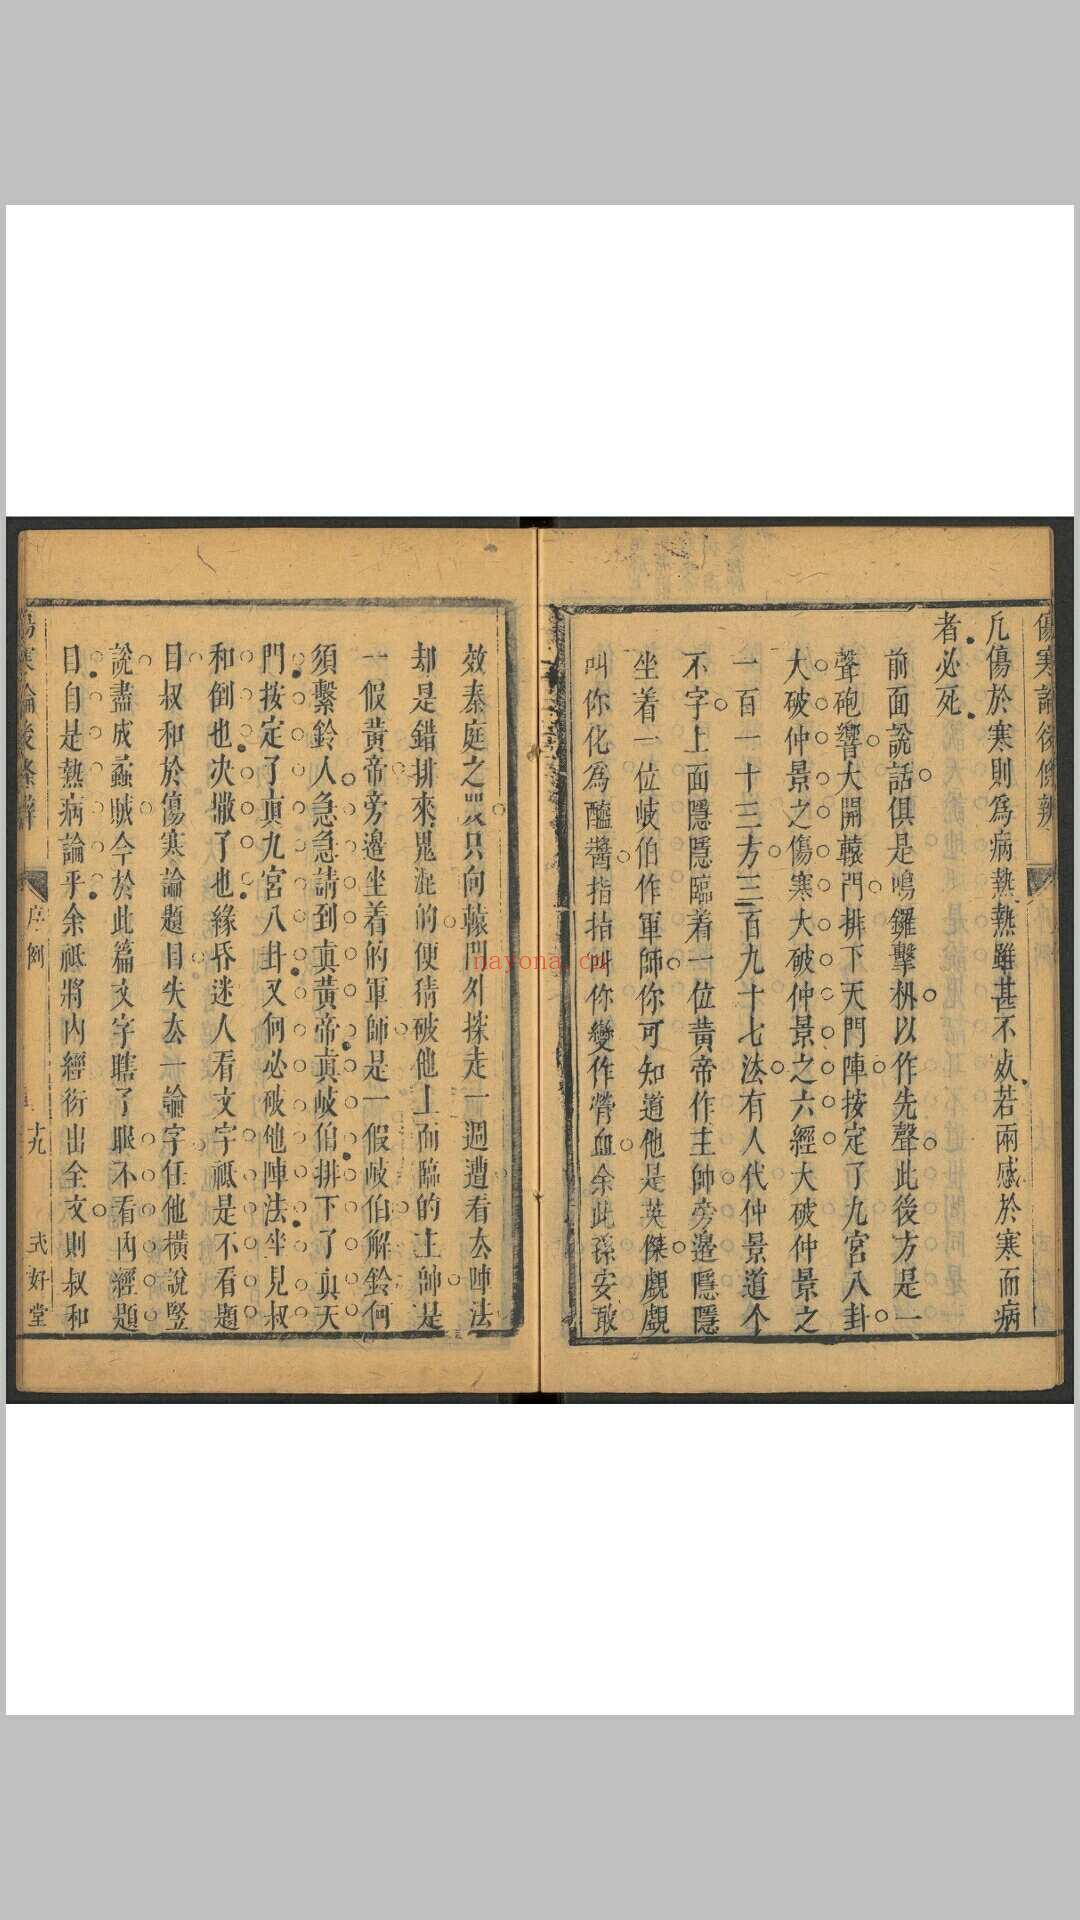 傷寒論後條辨
凢傷於寒則爲病熱熱雖甚不死若兩感於寒而病
者必死
前面說話俱是鳴鑼擊柝以作先聲此後方是一
聲砲響大開轅門排下天門陣按定了九宮八卦
大破仲景之傷寒大破仲景之六經大破仲景之
一百一十三方三百九十七法有人代仲景道个
不字上面隱隱臨着一位黃帝作主帥旁邉隱隱
坐着一位岐伯作軍師你可知道他是英傑覷覷
叫你化爲醯醬指指叫你變作膋血余此孫安敢
效秦庭之哭只向轅門外探走一週遭看厺陣法
却是錯排來鬼混的便猜破他上面臨的主帥是
一假黃帝旁邉坐着的軍師是一假岐伯解鈴何
須繫鈴人急急請到眞黃帝眞岐伯排下了眞天
門按定了眞九宮八卦又何必破他陣法坐見叔
和倒也决撒了也緣昏迷人看文字祗是不看題
目叔和於傷寒論題目失厺一論字任他橫說竪
說盡成蟊賊今於此篇文字瞎了眼不看內經題
目自是熱病論乎余祗將內經衍出全文則叔和
傷寒論後條辨
序例
十九
式好堂
nayona.cn